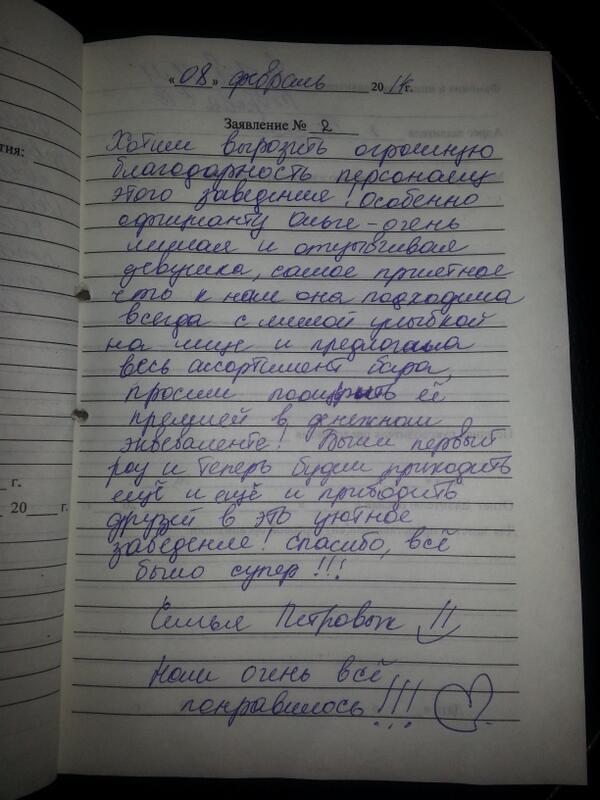 «08» февраль 2014г.
Заявление № 2
Хотим вырозить огромную
благодарность персоналу
этого заведения! Особенно
официанту Ольге – очень
милая и отзывчивая
девушка, самое приятное
что к нам она подходила
всегда с милой улыбкой
на лице и предлогала
весь ассортимент бара,
просим поощрить её
премией в денежном
эквеваленте! Были первый
раз и теперь будим приходить
ещё и ещё и приводить
друзей в это уютное
заведение! Спасибо, всё
было супер!!!
Семья Петровых !!
Нам очень всё
понравилось!!!
тия:
г.
20 г.